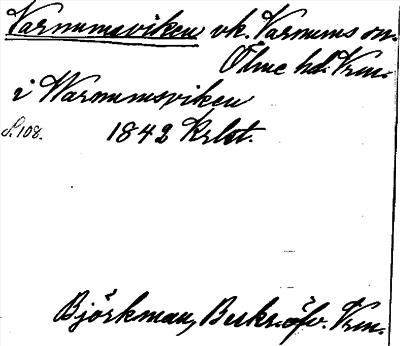 Varnumsviken vk. Varnums sn.
Ölme hd. Vrm.
i Warnumsviken
S. 108. 1842 Krlst.
Björkman, Beskr. öfv. Vrm.